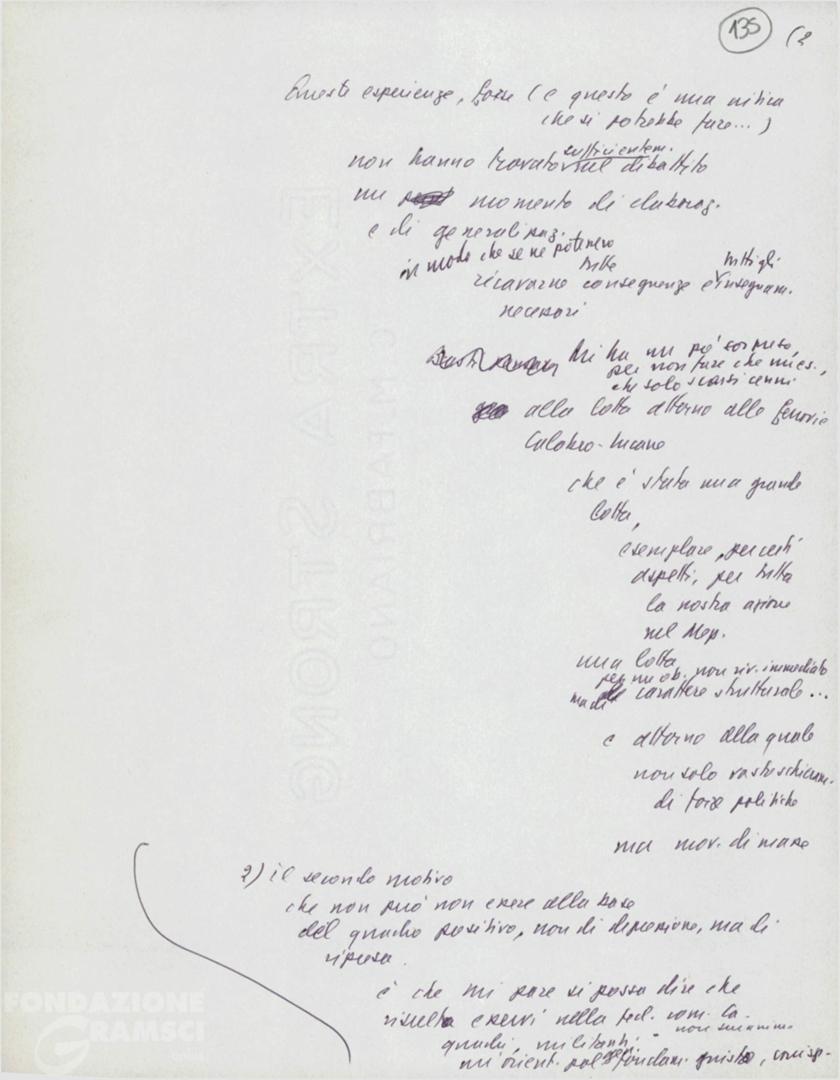 135 (2
Queste esperienze, forse (e questo è una critica
che si potrebbe fare...)
non hanno trovato nel dibattito
sufficientem.
un momento di elaboraz.
e di generalizzaz.
in modo che se ne potessero
ricavarne tutte conseguenze e tutti gli insegnam.
necessari
Mi ha un po' sorpreso,
per non fare che un es.,
che solo scarsi cenni
alla lotta attorno alle ferrovie
Calabro-Lucane
che è stata una grande
lotta,
esemplare, per certi
aspetti, per tutta
la nostra azione
nel Mezz.
una lotta
per un ob. non riv. immediato
ma di carattere strutturale...
e attorno alla quale
non solo vasto schieram.
di forze politiche
ma mov. di masse
2) il secondo motivo
che non può non essere alla base
del quadro positivo, non di depressione, ma di
ripresa.
è che mi pare si possa dire che
risulta esservi nella fed. com. la
quadri, militanti,
un orient. pol. fondam. giusto,
EXTRA STRONG
FABRIANO
FONDAZIONE
GRAMSCI